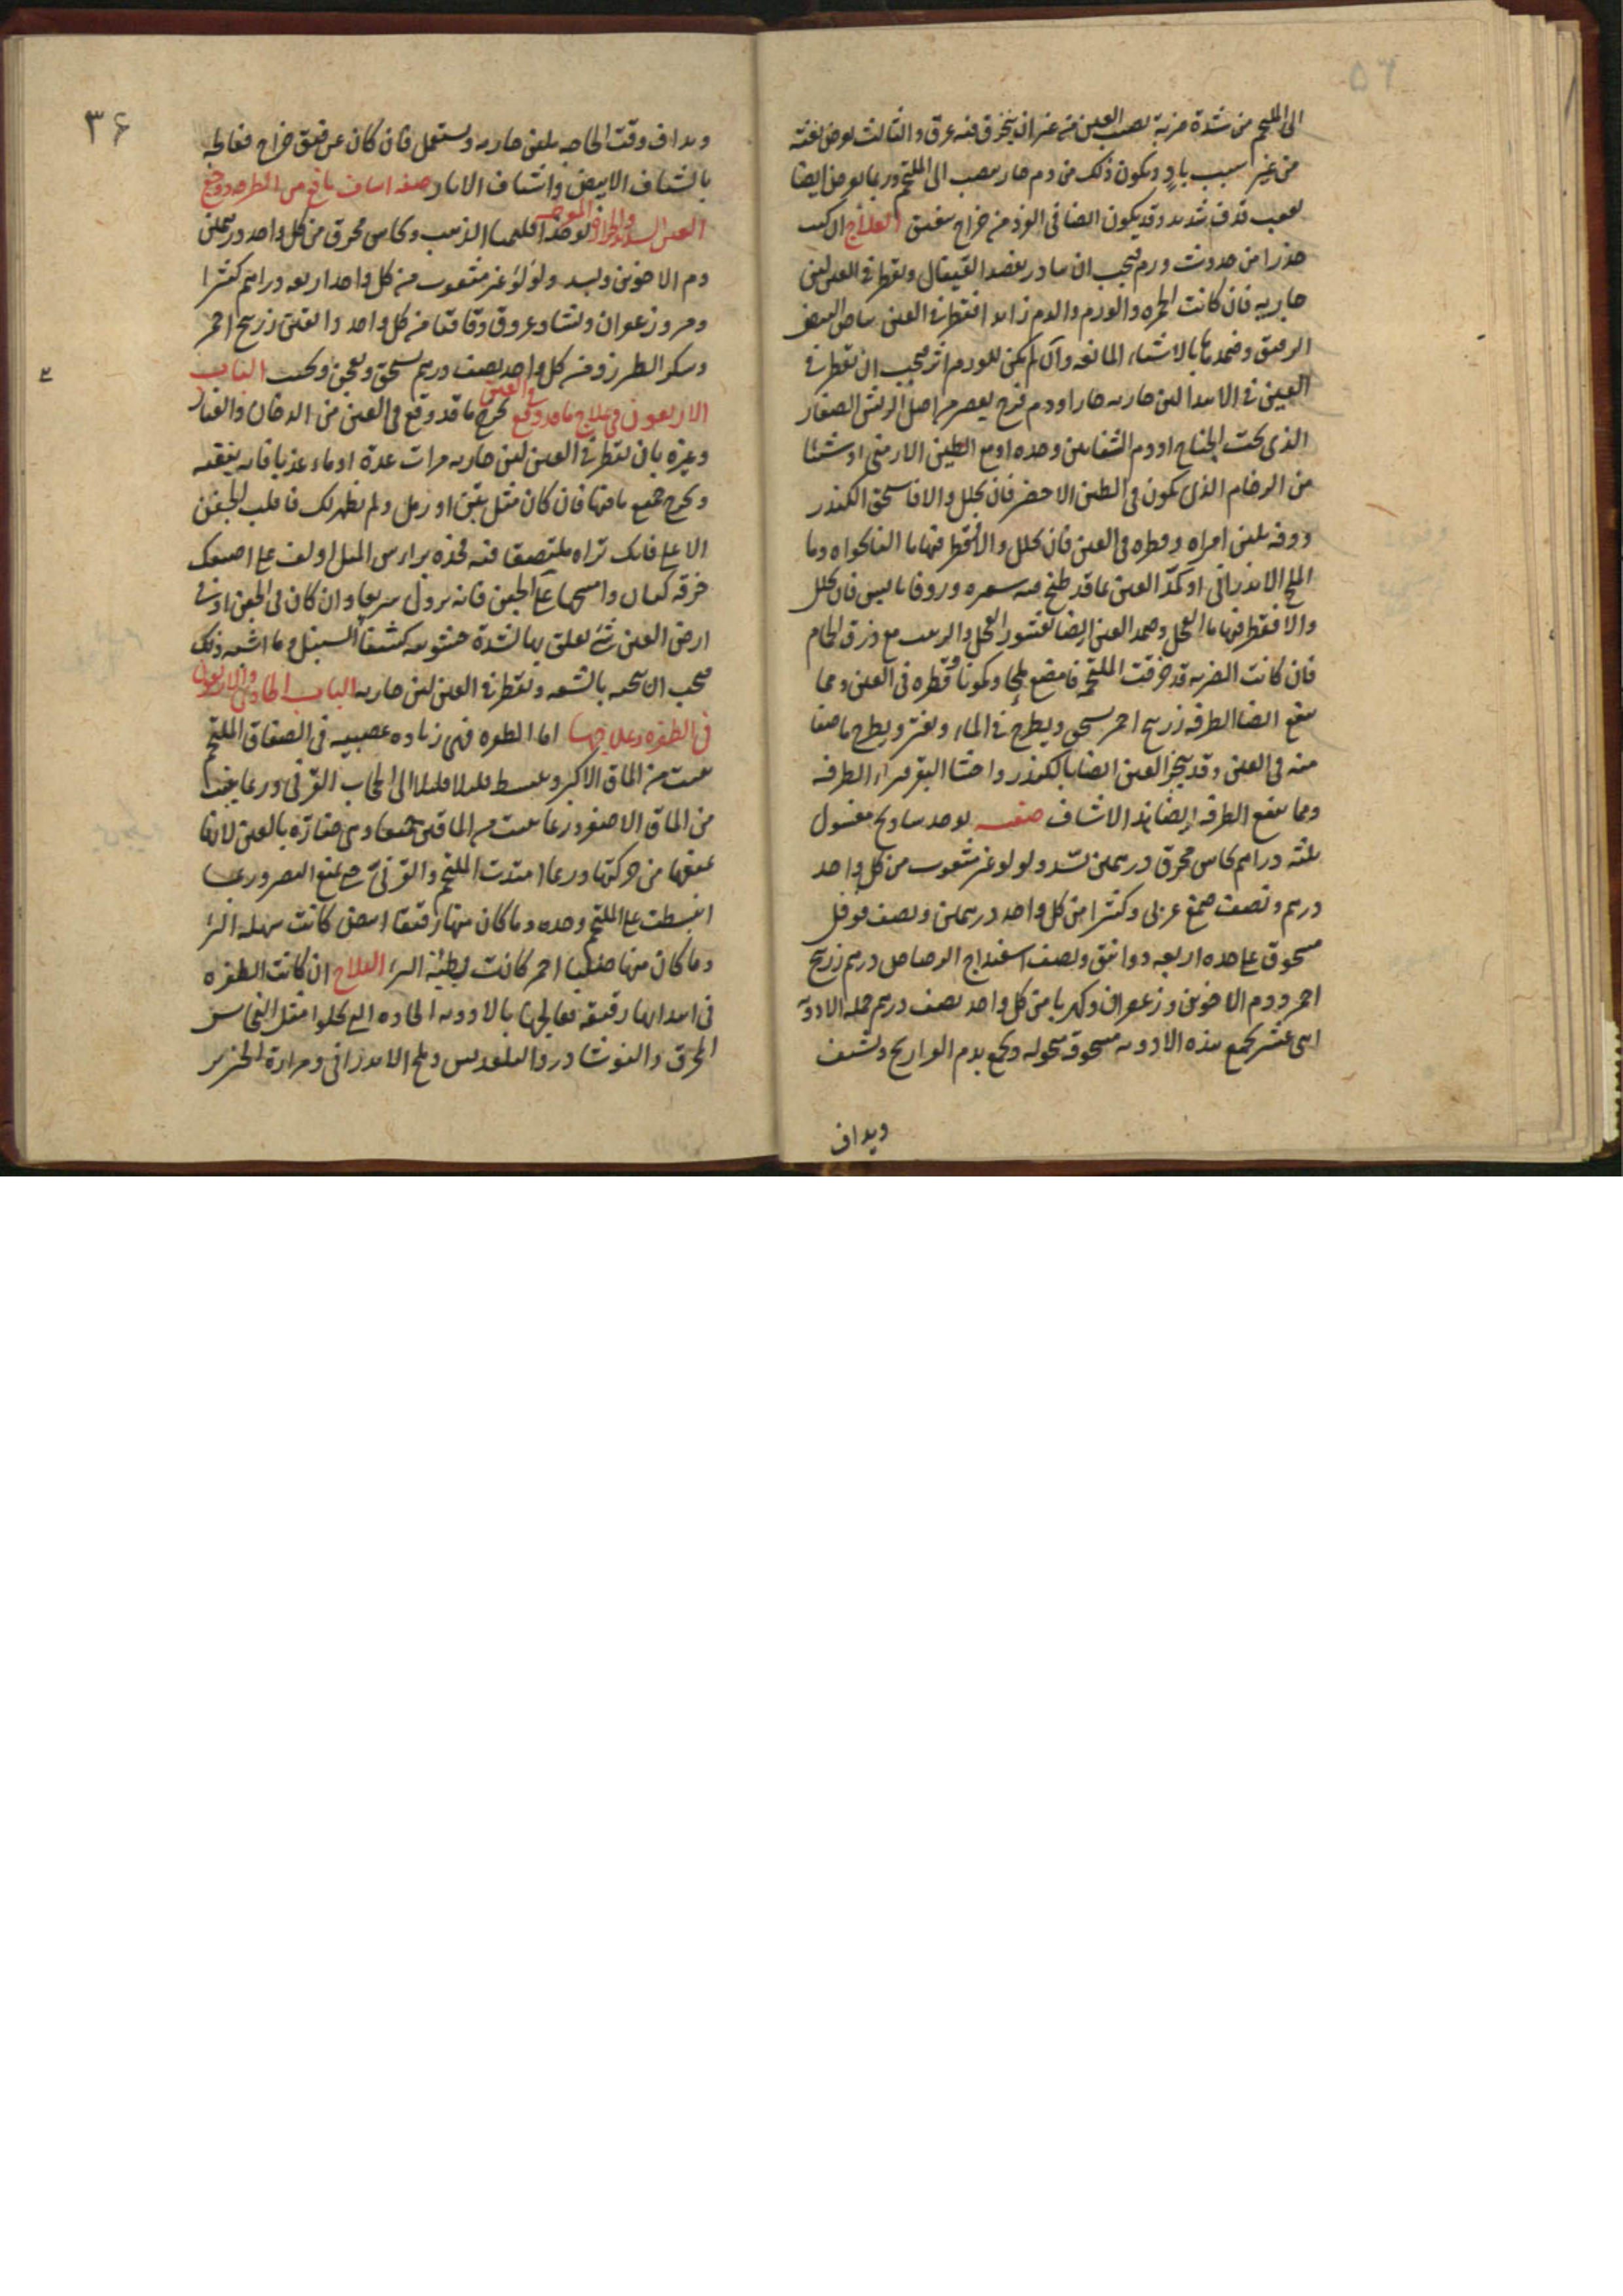 ٥٦
الى الملتحم من شدة ضربة تصيب العين من غير ان ينخرق فيه عرق والثالث يعرض بغتة
من غير سبب بادٍ ويكون ذلك من دم حار ينصب الى الملتحم وربما يعرض ايضا
بعقب قذف شديد وقد يكون ايضا في من خراج ينفتق العلاج ان كنت
حذرا من حدوث ورم فيجب ان تبادر بفصد القيفال وتقطر في العين لبن
جاريه فان كانت الحمره والورم والدم زايدا فقطر في العين بياض البيض
الرقيق وضمدها بالاشياء المانعه وان لم يكن للورم اثر فيجب ان تقطر في
العين في الابتدا لبن جاريه حارا ودم فرخ يعصر من اصل الريش الصغار
الذى تحت الجناح او دم الشفانين وحده او مع الطين الارمنى او شيئا
من الرخام الذى يكون في الطين الاخضر فان تحلل والا فاسحق الكندر
ودفه بلبن امراه وقطره في العين فان تحلل والا فقطر فيها ما النانخواه وما
الملح الاندرانى او كمّد العين بما قد طبخ فيه سعتر وزوفا يابس فان تحلل
والا فقطر فيها ما الفجل وضمد العين ايضا بقشور الفجل والزبيب مع ذرق الحمام
فان كانت الضربه قد خرقت الملتحمه فامضغ ملحا وكمونا وقطره في العين ومما
ينفع ايضا الطرفه زرنيخ احمر يسحق ويطرح في الماء ويفتر ويطرح ما صفا
منه في العين وقد يبخر العين ايضا بالكندر واخثا البقر من الطرفه
ومما ينفع الطرفه ايضا هذا الاشياف صفته يوخذ شادنج مغسول
ثلثه دراهم نحاس محرق درهمين بسد ولولو غير مثقوب من كل واحد
درهم ونصف صمغ عربى وكثيرا من كل واحد درهمين ونصف فوفل
مسحوق على حده اربعه دوانق ونصف اسفيداج الرصاص درهم زرنيخ
احمر ودم الاخوين وزعفران وكهربا من كل واحد نصف درهم جمله الادويه
اثنى عشر تجمع هذه الادويه مسحوقه منخوله وتجمع بدم الفراريج وتشيف
ويداف
٣۶
ويداف وقت الحاجه بلبن جاريه ويستعمل فان كان عن فتق خراج فعالجه
بالشياف الابيض واشياف الابار صفه اشياف نافع من الطرفه ووجع
العين الشديد يوخذ اقليميا الذهب ونحاس محرق من كل واحد درهمين
دم الاخوين وبسد ولؤلؤ غير مثقوب من كل واحد اربعه دراهم كثيرا
ومر وزعفران ونشا وعروق دقاقا من كل واحد دانقين زرنيخ احمر
وسكر الطبرزد من كل واحد نصف درهم يسحق ويعجن ويحبب الباب
الاربعون في علاج ما قد وقع في العين يخرج ما قد وقع في العين من الدخان والغبار
وغيره بان تقطر في العين لبن جاريه مرات عدة او ماء عذبا فانه ينقيه
ويخرج جميع ما فيها فان كان مثل تبن او رمل ولم يظهر لك فاقلب الجفن
الاعلى فانك تراه ملتصقا فيه فخذه براس الميل او لف على اصبعك
خرقه كتان وامسحها على الجفن فانه يزول سريعا وان كان في الجفن او في
ارض العين شئ تعلق بها لشدة خشونته كشفا السنبل وما اشبه ذلك
فيجب ان تنحيه بالشعه وتقطر في العين لبن جاريه الباب الحادى والاربعون
في الظفره وعلاجها اما الظفره فهى زياده عصبيه في الصفاق الملتحم
تنبت من الماق الاكبر وتنبسط قليلا قليلا الى الحجاب القرنى وربما ينبت
من الماق الاصغر وربما نبتت من الماقين جميعا وهى ضارّه بالعين لانها
تمنعها من حركتها وربما امتدت الملتحم والقرنى حتى تمنع البصر وربما
انبسطت على الملتحم وحده وما كان منها رقيقا ابيض كانت سهله البرء
وما كان منها صلبا احمر كانت بطيئة البرء العلاج ان كانت الظفره
في ابتدائها رقيقه تعالجها بالادويه الحاده التى تجلوا مثل النحاس
المحرق والنوشادر والقلقديس وملح الاندرانى ومرارة الخنزير